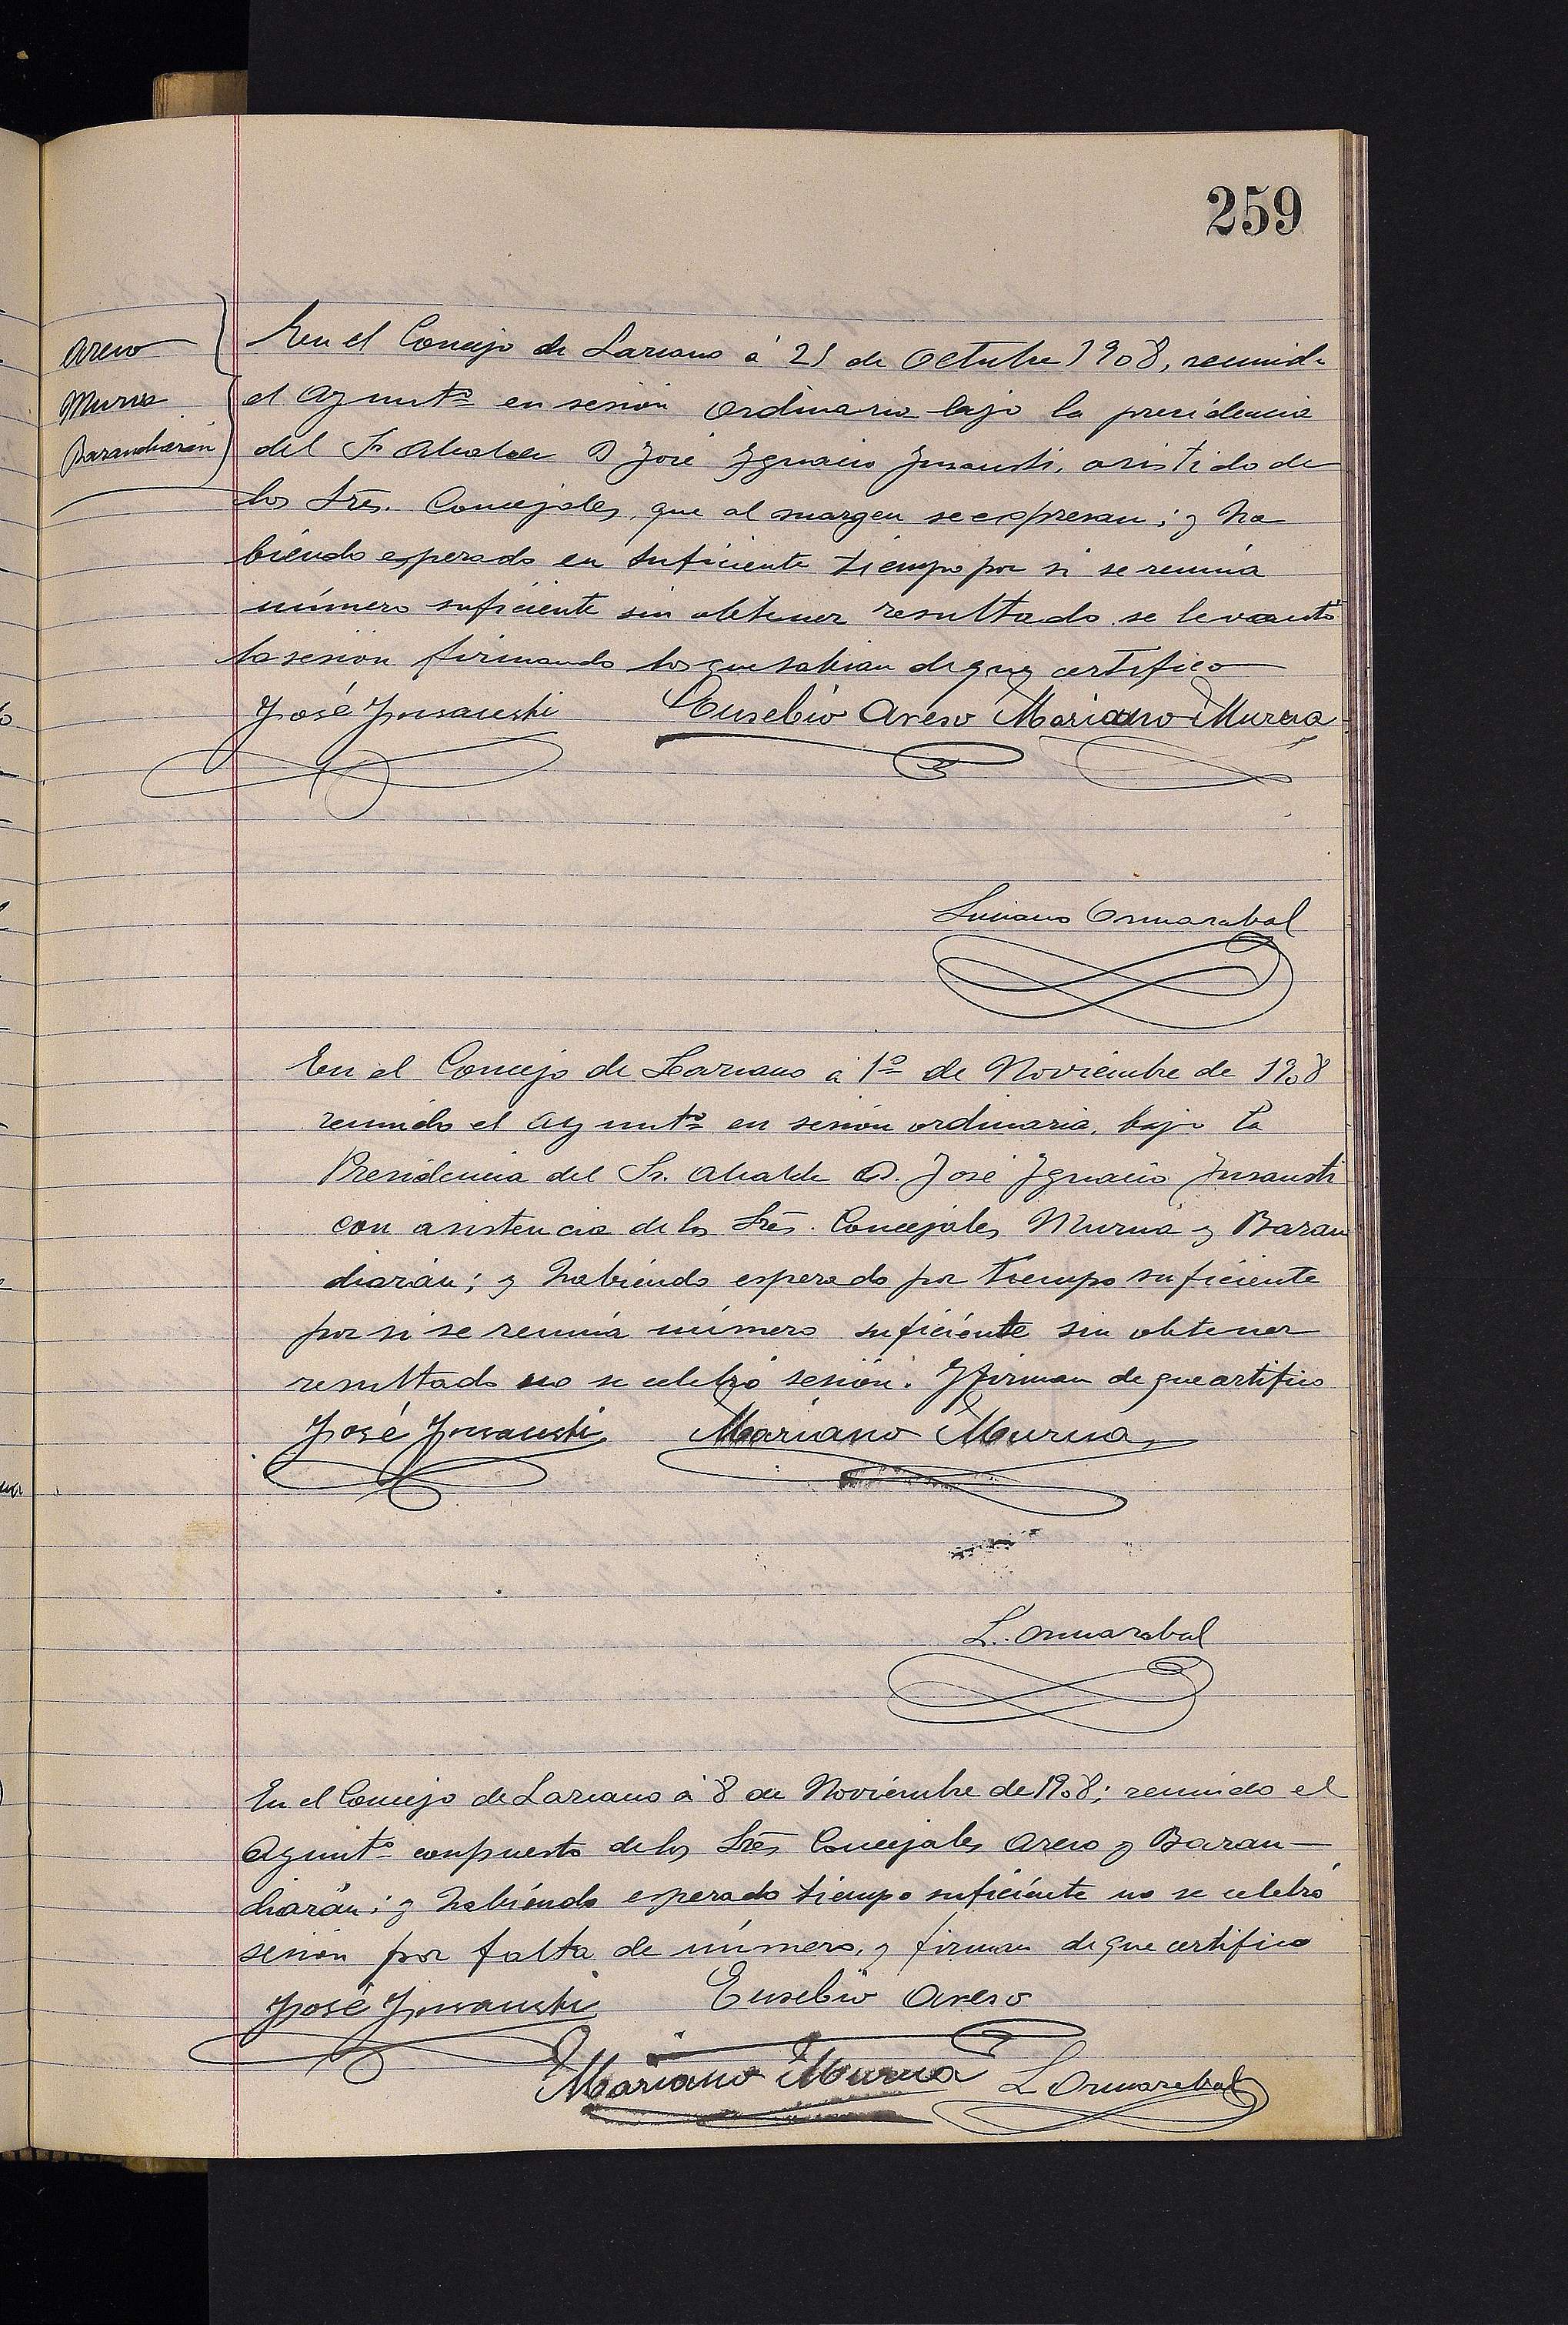 259
Areso
Murua
Barandiarán
En el Concejo de Lazcano á 25 de Octubre 1908, reunido
el Ayuntº en sesión ordinaria bajo la presidencia
del Sr Alcalde D José Ygnacio Ynsausti, asistido de
los Sres. Concejales, que al margen se expresan; y ha
biendo esperado en suficiente tiempo por si se reunía
número suficiente sin obtener resultado se levantó
la sesión firmando los que sabian de que certifico
José Ynsausti Eusebio Areso Mariano Murua
Luciano Ormazabal
En el Concejo de Lazcano á 1º de Noviembre de 1908
reunido el Ayuntº en sesión ordinaria, bajo la
Presidencia del Sr. Alcalde D. José Ygnacio Ynsausti
con asistencia de los Sres. Concejales Murua y Baran
diarán; y habiendo esperado por tiempo suficiente
por si se reunía número suficiente sin obtener
resultado no se celebró sesión. Y firman de que certifico
José Ynsausti Mariano Murua
L. Ormazabal
En el Concejo de Lazcano á 8 de Noviembre de 1908; reunido el
Ayuntº conpuesto de los Sres Concejales Areso y Baran-
diarán; y habiendo esperado tiempo suficiente no se celebró
sesión por falta de número, y firman de que certifico
José Ynsausti Eusebio Areso
Mariano Murua L Ormazabal